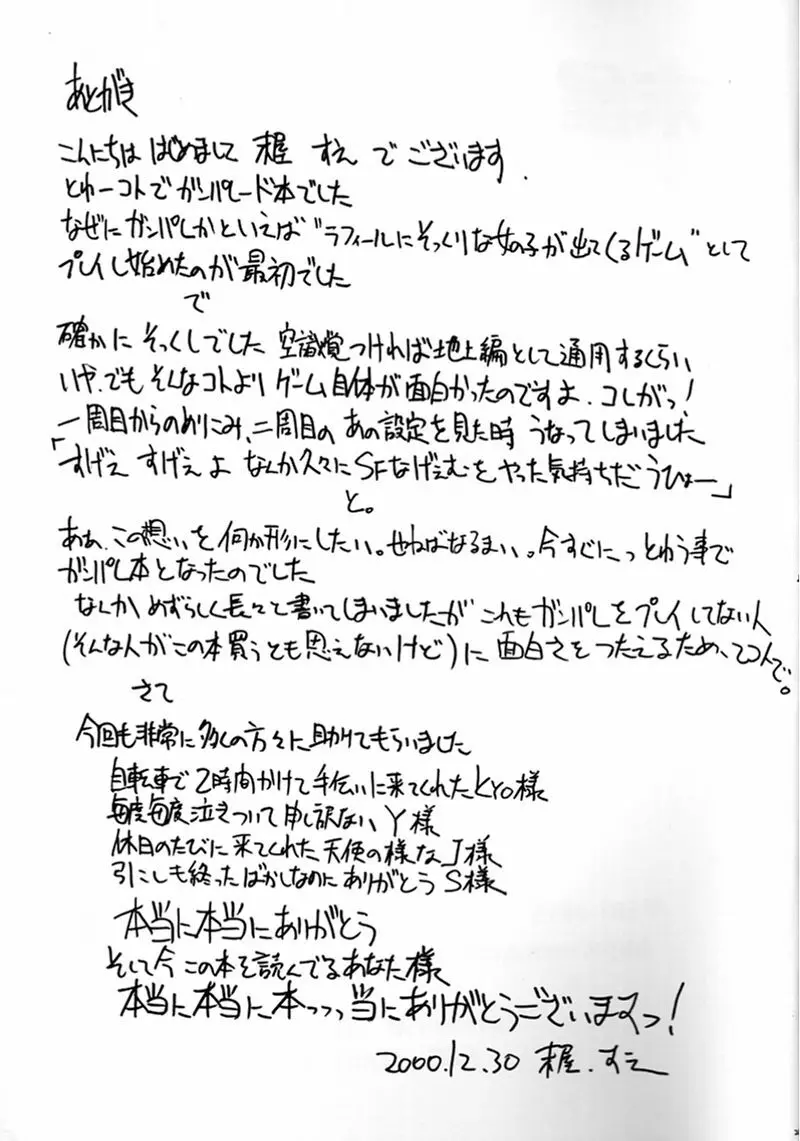 あとがき
こんにちは はじめまして 屋 すえ でございます
とゆーコトで ガンパレード本でした
なぜに ガンパレかといえば "ラフィールにそっくりな女の子が出てくるゲーム" として
プレイし始めたのが 最初でした
で
確かに そっくしでした 空識覚つければ地上編として通用するくらい
いや、でも そんなコトより ゲーム自体が面白かったのですよ、コレがっ!
一周目からのめりこみ、二周目の あの設定を見た時 うなってしまいました
「すげぇ すげぇ よ なんか久々に SFなげぇむを やった気持ちだ うひょー」
と。
ああ、この想いを 何か形にしたい。せねばなるまい。今すぐにっ とゆう事で
ガンパレ本となったのでした
なんか めずらしく長々と書いてしまいましたが これも ガンパレを プレイしてない人
(そんな人が この本買うとも思えないけど) に 面白さを つたえるため、てコトで。
さて
今回も非常に多くの方々に助けてもらいました
自転車で 2時間かけて 手伝いに来てくれた Kyo様
毎度毎度泣きついて 申し訳ない Y様
休日のたびに 来てくれた 天使の様な J様
引こしも終ったばかしなのに ありがとう S様
本当に本当にありがとう
そして今 この本を読んでるあなた様
本当に本当に本っっっ当にありがとうございますっ!
2000.12.30 屋.すえ